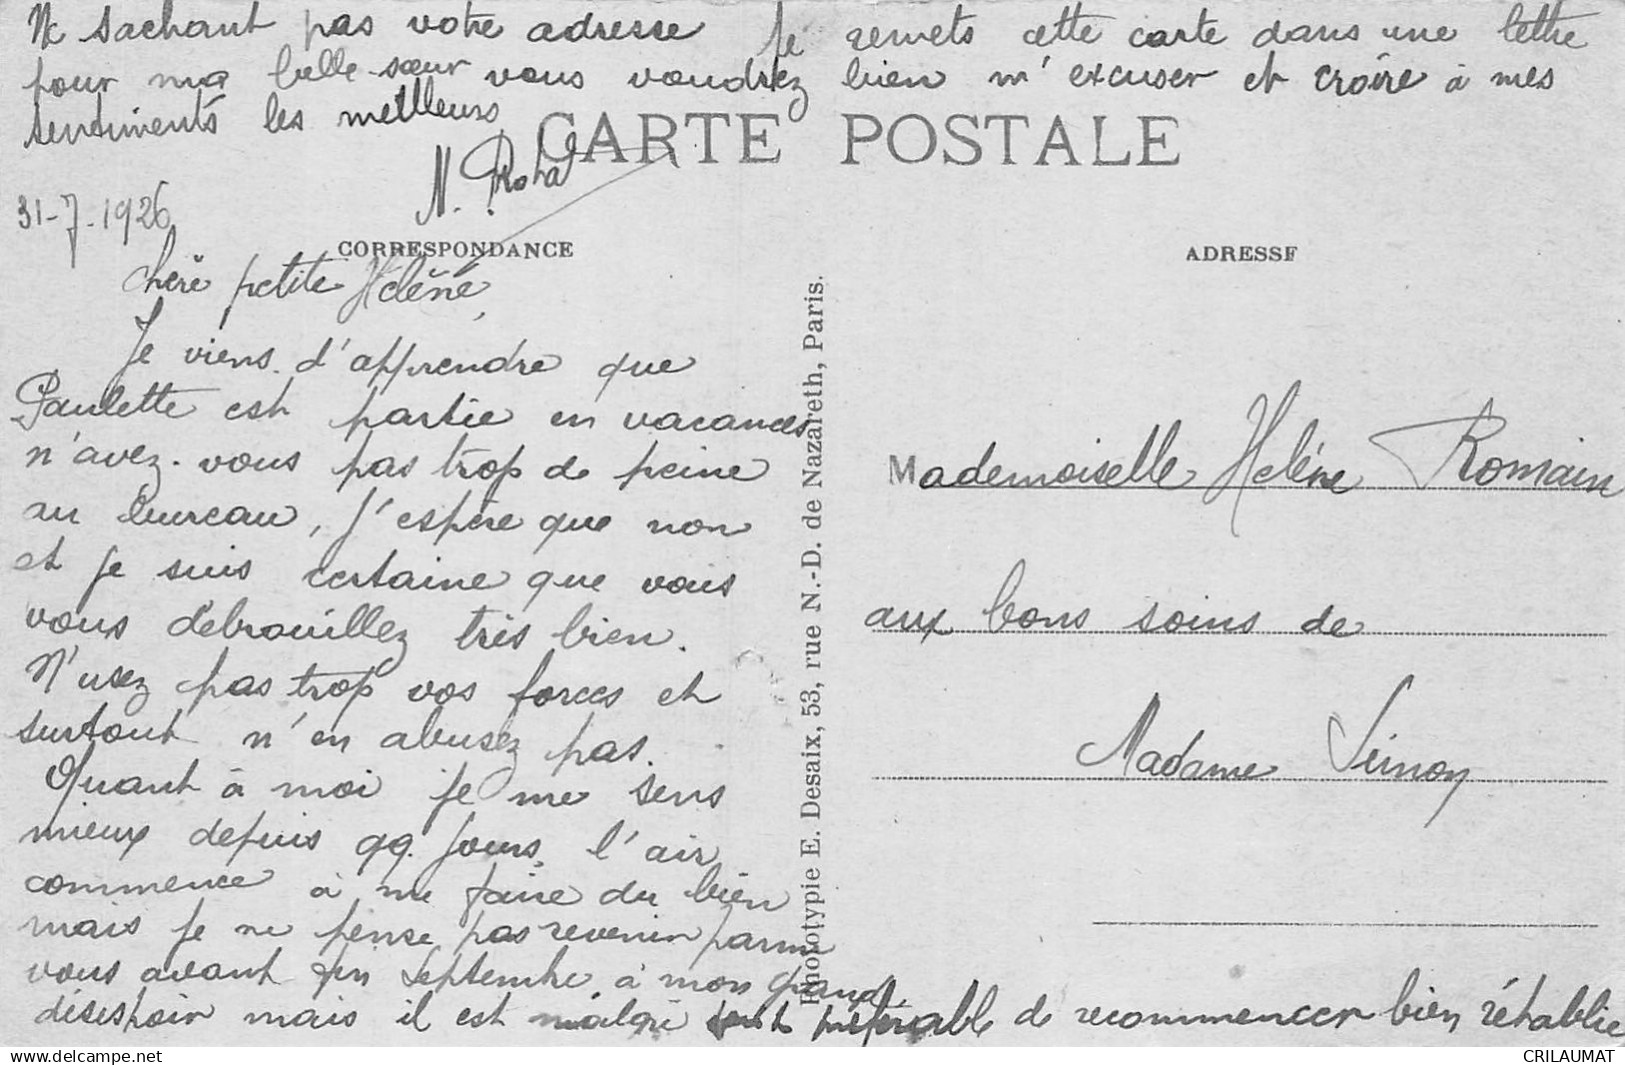 Ne sachant pas votre adresse je remets cette carte dans une lettre
pour ma belle-sœur vous voudrez bien m'excuser et croire à mes
sentiments les meilleurs
CARTE POSTALE
N.
31-7-1926
CORRESPONDANCE
ADRESSE
Chère petite Hélène,
Je viens d'apprendre que
Paulette est partie en vacances
n'avez-vous pas trop de peine
au bureau, j'espère que non
et je suis certaine que vous
vous débrouillez très bien.
N'usez pas trop vos forces et
surtout n'en abusez pas.
Quant à moi je me sens
mieux depuis qq. jours, l'air
commence à me faire du bien
mais je ne pense pas revenir parmi
vous avant fin Septembre, à mon grand
désespoir mais il est malgré tout préférable de recommencer bien rétablie
Phototypie E. Desaix, 53, rue N.-D. de Nazareth, Paris.
Mademoiselle Hélène Romain
aux bons soins de
Madame
CRILAUMAT